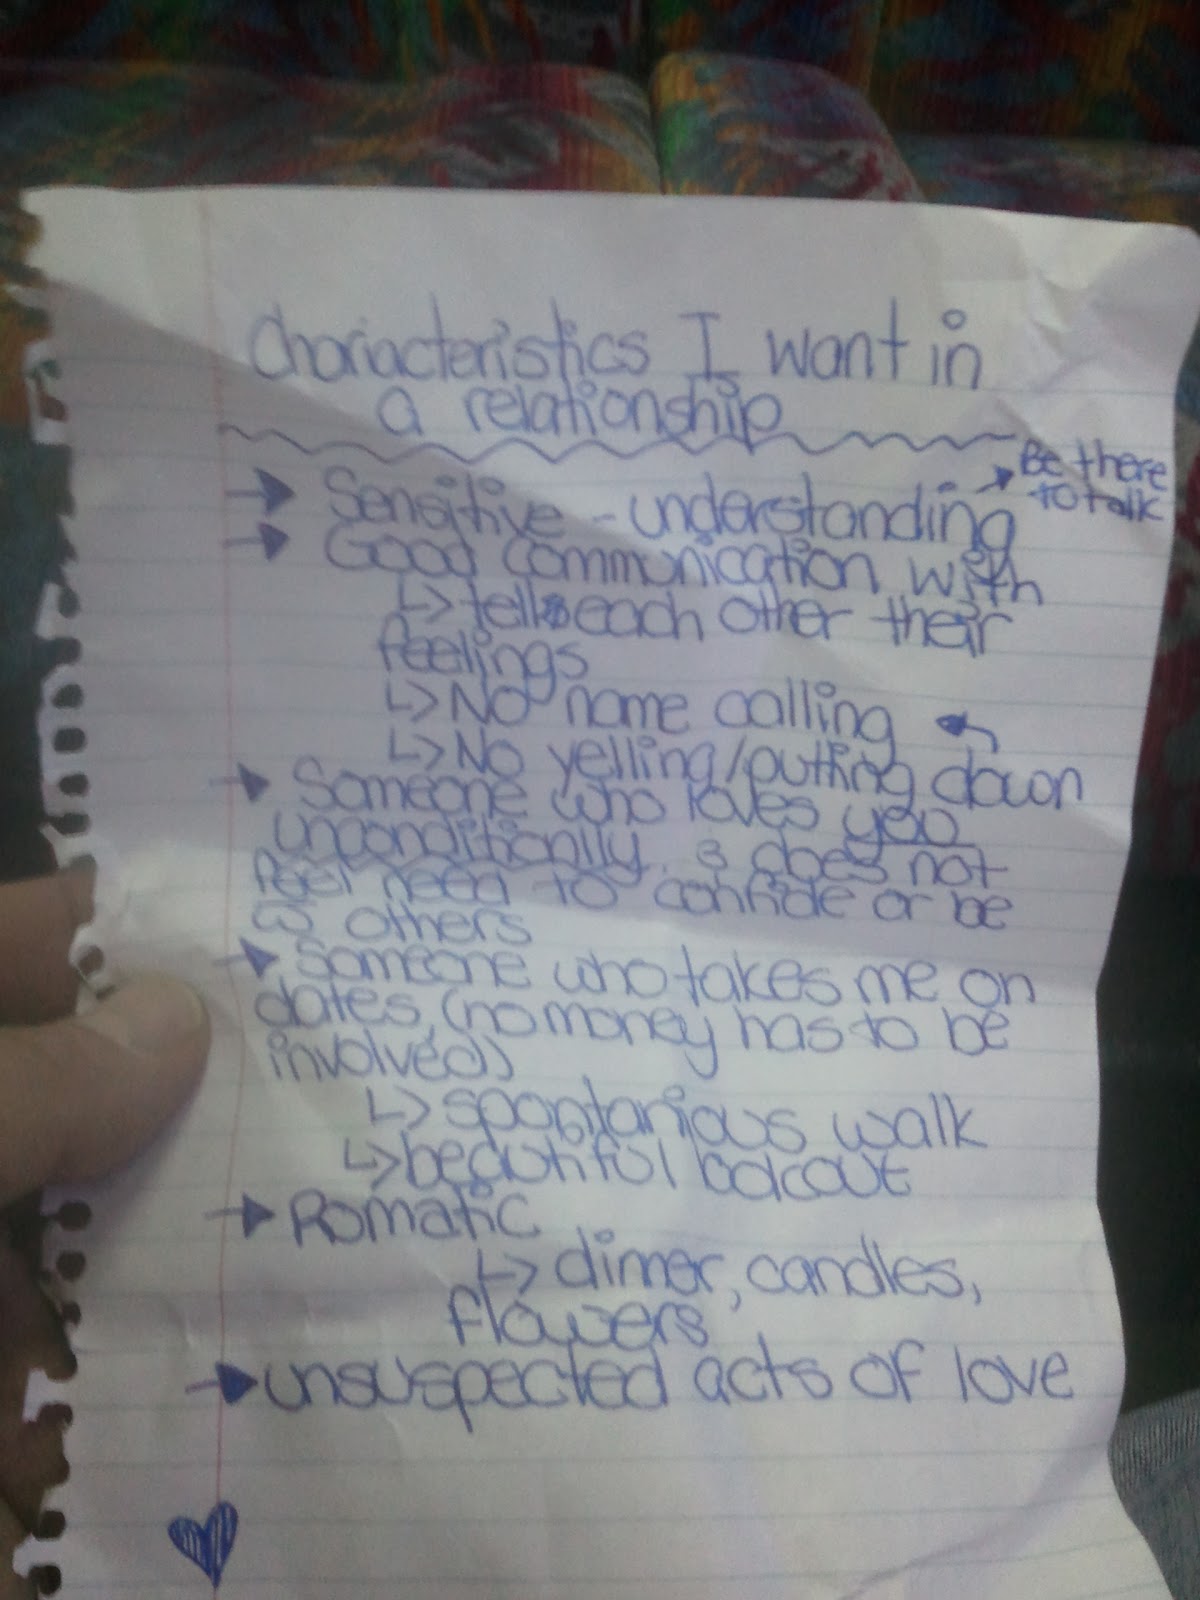 Characteristics I want in
a relationship
→ Sensitive - understanding → Be there
to talk
→ Good communication with
↳ tell each other their
feelings
↳ No name calling
↳ No yelling/putting down
→ Someone who loves you
unconditionally & does not
feel need to confide or be
w others
→ Someone who takes me on
dates, (no money has to be
involved)
↳ spontanious walk
↳ beautiful lookout
→ Romatic
↳ dinner, candles,
flowers
→ unsuspected acts of love